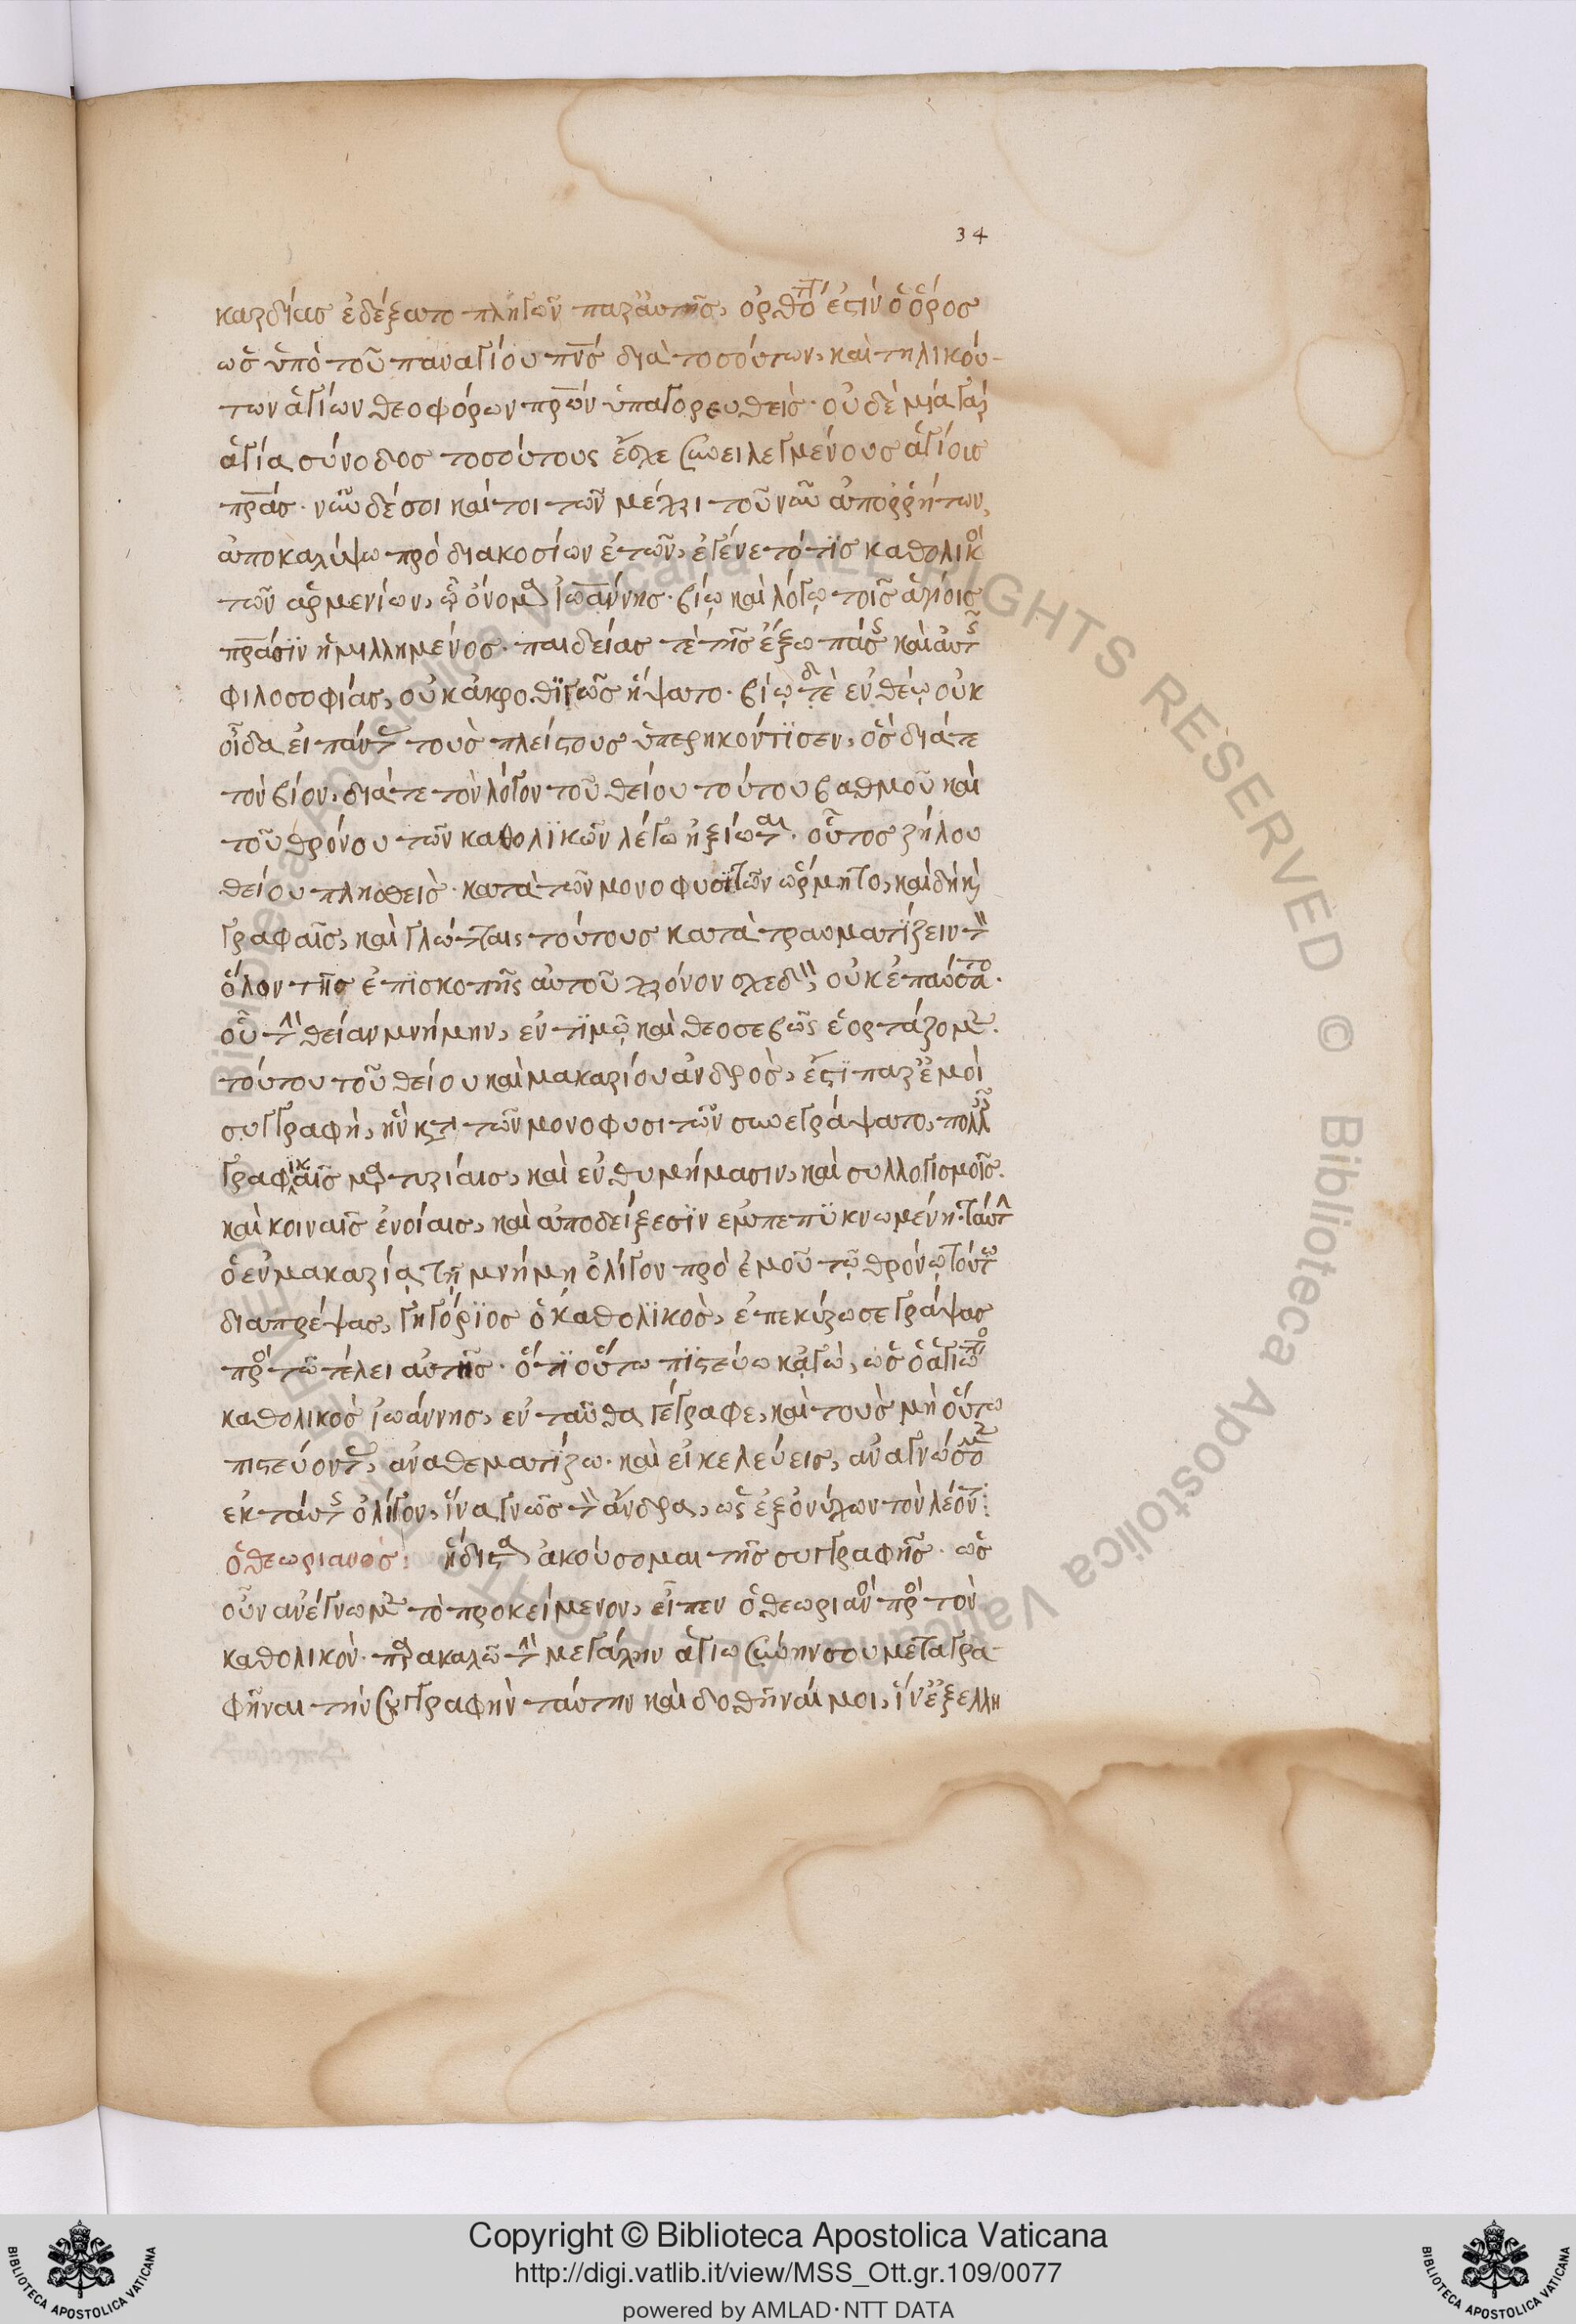 34
καρδίας ἐδέξατο πληγὼν παρ' αὐτῆς, ὀρθό π ἐστὶν ὁ ὅρος
ὡς ὑπὸ τοῦ παναγίου πν̅ς διὰ τοσούτων, καὶ τηλικού-
των ἁγίων θεοφόρων πρ̅ων ὑπαγορευθείς· οὐδὲ μία γὰρ
ἁγία σύνοδος τοσούτους ἔσχε συνειλεγμένους ἁγίοις
πρ̅ας· νῦν δέ σοι καί τοι τῶν μέχρι τοῦ νῦν ἀπορρήτων,
ἀποκαλύψω πρὸ διακοσίων ἐτῶν, ἐγένετό τις καθολικὸ
τῶν ἀρμενίων, ᾧ ὄνομα ἰωάννης· βίῳ καὶ λόγῳ τοῖς ἁγίοις
πρ̅άσιν ἡμιλλημένος· παιδείας τὲ τῆς ἔξω πάσ καὶ αὐτ
φιλοσοφίας, οὐκ ἀκροθιγῶς ἥψατο· βίῳ δὲ τὲ ἐνθέῳ οὐκ
οἶδα εἰ πάντ τοὺς πλείστους ὑπερηκόντισεν, ὃς διά τε
τὸν βίον, διά τε τὸν λόγον τοῦ θείου τούτου βαθμοῦ καὶ
τοῦ θρόνου τῶν καθολικῶν λέγω ἠξίωται· οὗτος ζήλου
θείου πλησθεὶς· κατὰ τῶν μονοφυσιτῶν ὥρμητο, καὶ δὴ κ̀
γραφαῖς, καὶ γλώτταις τούτους κατὰ τραυματίζειν τὸν
ὅλον τῆς ἐπισκοπῆς αὐτοῦ χρόνον σχεδὸν, οὐκ ἐπαύσατο·
οὗ τὴν θείαν μνήμην, ἐντίμως καὶ θεοσεβῶς ἑορτάζομεν.
τούτου τοῦ θείου καὶ μακαρίου ἀνδρὸς, ἔστι παρ' ἐμοὶ
συγγραφὴ, ἣν κατὰ τῶν μονοφυσιτῶν συνεγράψατο, πολλ
γραφικαῖς μαρτυρίαις, καὶ ἐνθυμήμασιν, καὶ συλλογισμοῖς.
καὶ κοιναῖς ἐνοίαις, καὶ ἀποδείξεσιν ἐμπεπυκνωμένη· ταύτην
ὁ ἐν μακαρίᾳ τῇ μνήμῃ ὀλίγον πρὸ ἐμοῦ τῷ θρόνῳ τούτω
διαπρέψας, γηγόριος ὁ καθολικὸς, ἐπεκύρωσε γράψας
πρὸ τῶ τέλει αὐτῆς· ὅτι οὕτω πιστεύω κἀγὼ, ὡς ὁ ἁγιώτ
καθολικὸς ἰωάννης, ἐνταῦθα γέγραφε, καὶ τοὺς μὴ οὕτω
πιστεύοντ, ἀναθεματίζω· καὶ εἰ κελεύεις, ἀναγνώσομ
ἐκ ταύτ ὀλίγον, ἵνα γνῶς τὸν ἄνδρα, ὡς ἐξ ὀνύχων τὸν λέοντ:
ὁ θεωριανὸς: ἥδιστα ἀκούσομαι τῆς συγγραφῆς· ὡς
οὖν ἀνέγνωμ τὸ προκείμενον, εἶπεν ὁ θεωριανὸ πρὸ τὸν
καθολικὸν· παρακαλῶ τὴν μεγάλην ἁγιωσύνην σου μεταγρα-
φῆναι τὴν συγγραφὴν ταύτην καὶ δοθῆναί μοι, ἵν' ἐξελλη
Copyright © Biblioteca Apostolica Vaticana
http://digi.vatlib.it/view/MSS_Ott.gr.109/0077
powered by AMLAD·NTT DATA